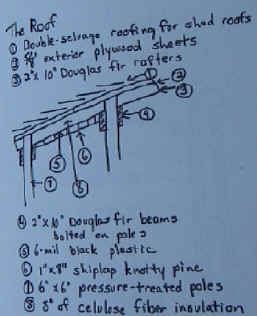 The Roof
① Double-selvage roofing for shed roofs
② 5/8" exterior plywood sheets
③ 2"x 10" Douglas fir rafters
① ② ③
④
⑤ ⑥
⑦ ⑧
④ 2"x10" Douglas fir beams
bolted on poles
⑤ 6-mil black plastic
⑥ 1"x8" shiplap knotty pine
⑦ 6"x6" pressure-treated poles
⑧ 8" of celulose fiber insulation